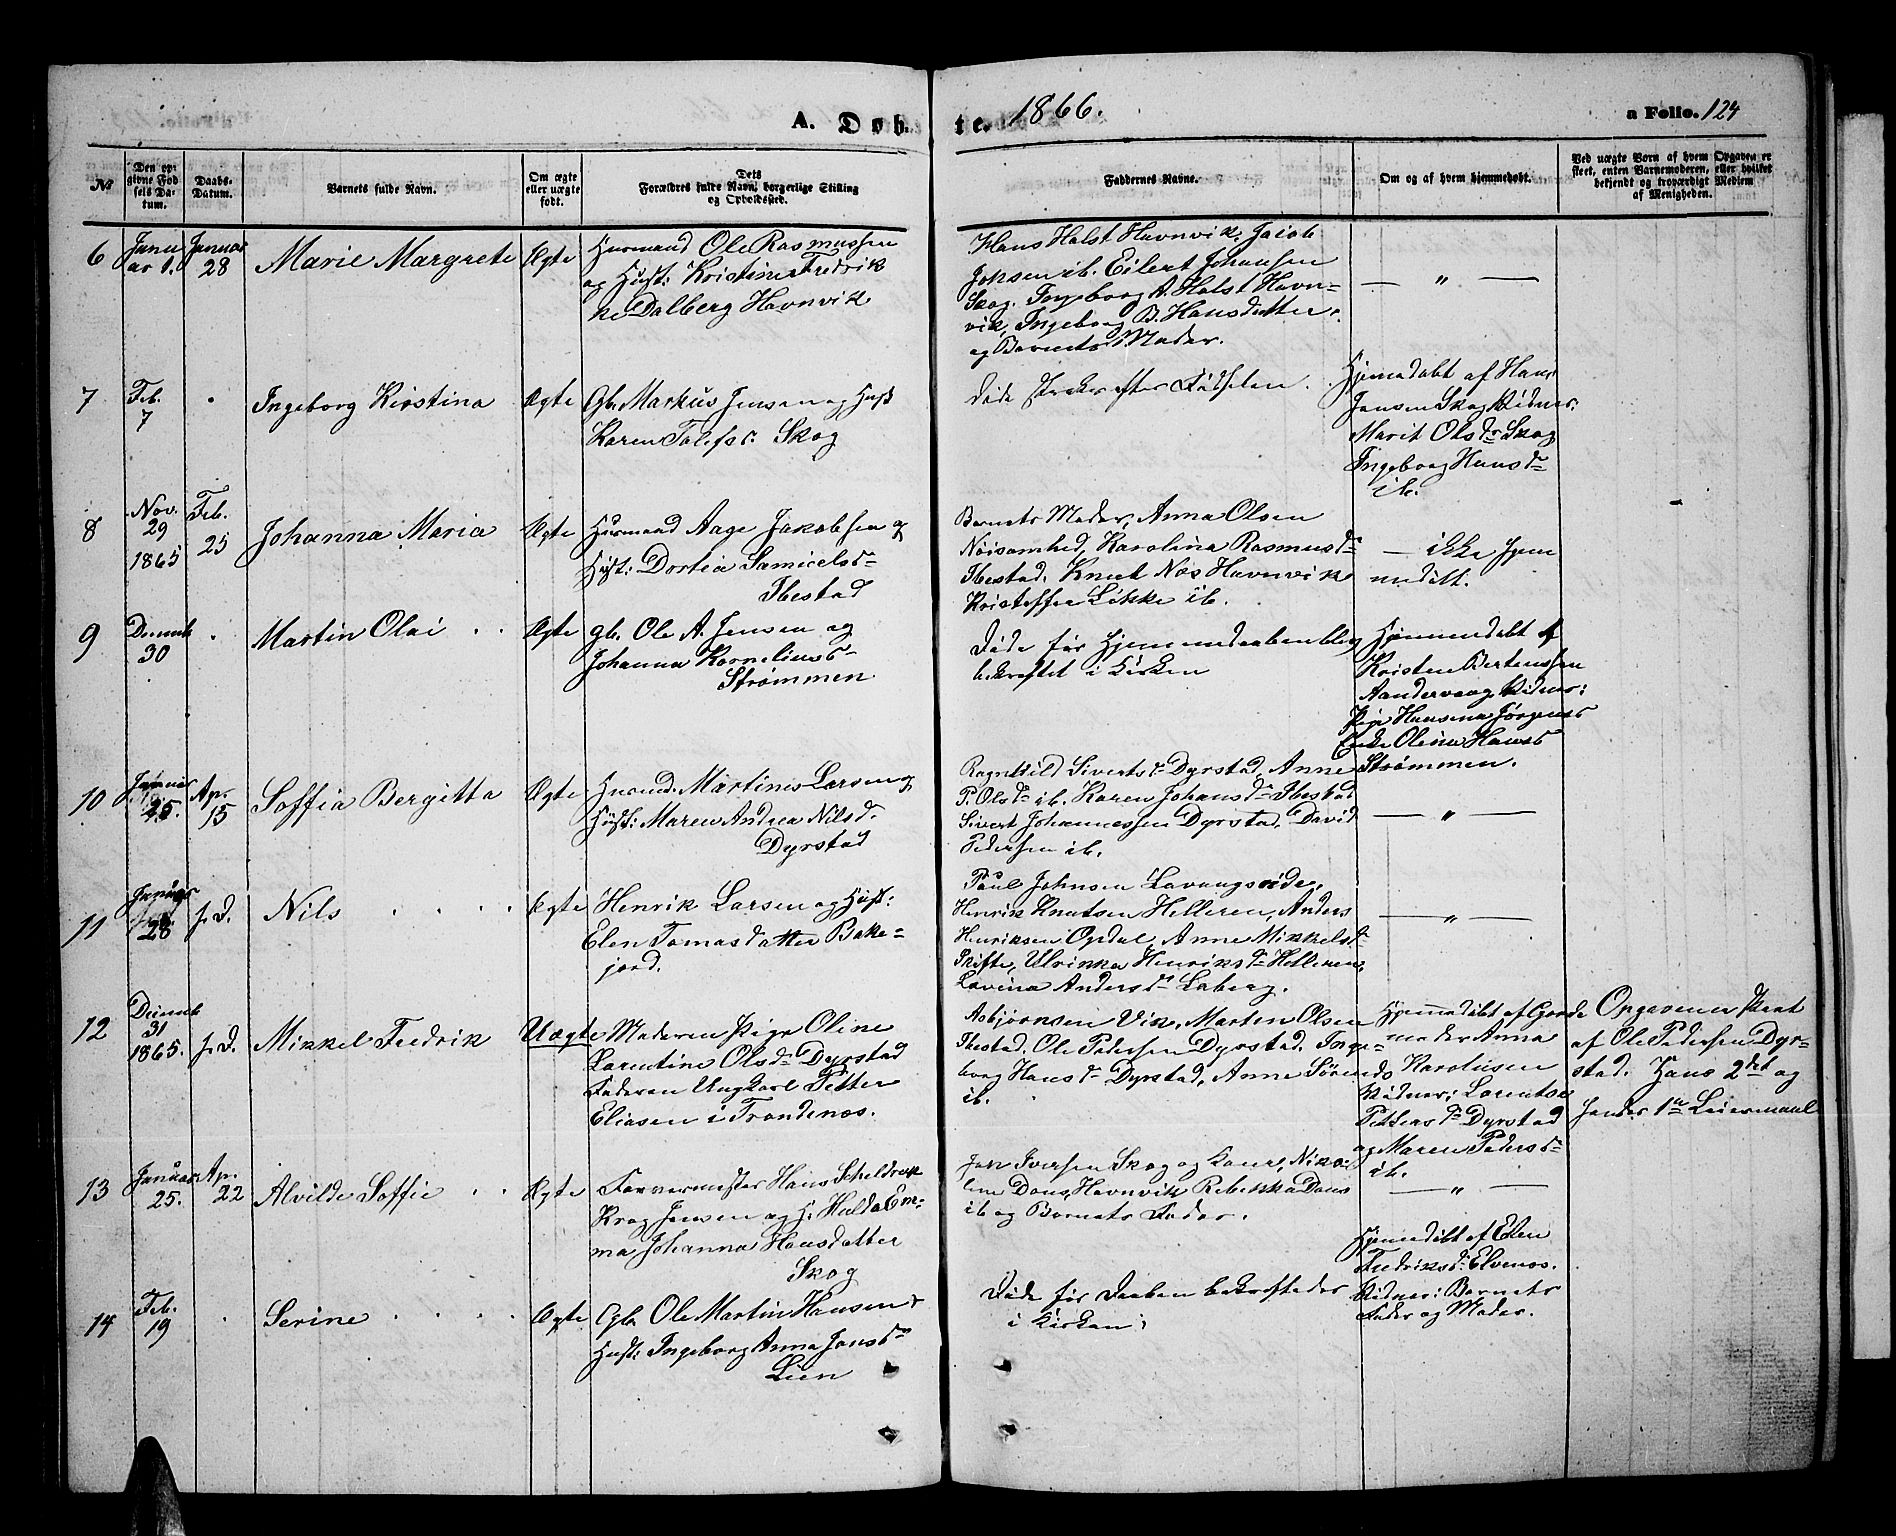 A. Døb
te. 1866.
a Folio. 124
№
Den op-
givne Fød
sels Da-
tum.
Daabs-
Datum.
Barnets fulde Navn.
Om ægte
eller uægte
født.
Dets
Forældres fulde Navn, borgerlige Stilling
og Opholdssted.
Faddernes Navne.
Om og af hvem hjemmedøbt.
Ved uægte Børn af hvem Opgaven er
skeet, enten Barnemoderen, eller hvilket
bekjendt og troværdigt Medlem
af Menigheden.
6
Janu
ar 1.
Januar
28
Marie Margrete
Ægte
Husmand Ole Rasmussen
og Hust: Kristine Fredrik
ke Dalberg Havnvik
Hans Holst Havnvik, Jacob
Johsen ib. Eilert Johansen
Skog. Ingeborg A. Holst Havn-
vik, Ingeborg B. Hansdatter,
og Barnets Moder.
— " —
7
Feb.
7
.
Ingeborg Kirstina
Ægte
Gb. Markus Jensen og Hust
Karen Tolefsd: Skog
Døde strax efter Fødselen.
Hjemedøbt af Hans
Jensen Skog Vidner:
Marit Olsdr Skog
Ingeborg Hansdr
ib.
8
Nov.
29
1865
Feb.
25
Johanna Maria
Ægte
Husmand Aage Jakobsen og
Hust: Dortea Samuelsdr
Ibestad
Barnets Moder, Anna Olsen
Nøisomhed, Karolina Rasmusdr
Ibestad. Knut Nos Havnvik
Kristoffer Løkke ib.
— ikke hjem
medøbt.
9
Decemb
30
.
Martin Olai . .
Ægte
gb. Ole A. Jensen og
Johanna Korneliusdr
Strømmen
Døde før Hjemmedaaben blev
bekræftet i Kirken
Hjemmedøbt af
Kristen Bertensen
Aandervaag Vidner:
Pige Hansina Jørgensd
Enke Olina Hansd
Strømmen.
10
Januar
25.
Ap.
15
Soffia Bergitta
Ægte
Husmd. Martines Larsen og
Hust: Maren Andrea Nilsd.
Dyrstad
Ragnhild Sivertsdr Dyrstad, Anne
P. Olsdr ib. Karen Johansdr Ibestad
Sivert Johannessen Dyrstad, David
Pedersen ib.
— " —
11
Januar
28
s. D.
Nils . . . .
Ægte
Henrik Larsen og Hust:
Elen Tomasdatter Bake-
jord.
Paul Johnsen Lavangseide,
Henrik Knutsen Helleren, Anders
Henriksen Opdal, Anne Mikkelsdr
Skifte, Ulrikka Henriksdr Helleren,
Lovina Andersdr Laberg.
— " —
12
Decemb
31
1865.
s. D.
Mikkel Fredrik
Uægte
Moderen Pige Oline
Larentine Olsdr Dyrstad
Faderen Ungkarl Petter
Eliasen i Trondenæs.
Asbjørnsen Vik, Martin Olsen
Ibestad, Ole Pedersen Dyrstad, Inge-
borg Hansdr Dyrstad, Anne Sørends
ib.
Hjemmedøbt af Gjorde
moder Anna
Karolusen
Vidner: Lorentse
Pettersdr Dyrstad
og Maren Pedersdr
ib.
Opgaven er skeet
af Ole Pedersen Dyr-
stad. Hans 2det og
hendes 1ste Leiermaal
13
Januar
25.
Ap.
22
Alvilde Soffie . .
Ægte
Farvermester Hans Scheldrup
Krog Jensen og H: Hulda Em-
ma Johanna Hansdatter
Skog
Jon Iversen Skog og Kone, Niko-
line Dons Havnvik Rebekka Dons
ib og Barnets Fader.
— " —
14
Feb.
19
.
Serine . . . .
Ægte
Gb. Ole Martin Hansen
Hust: Ingeborg Anna Jonsdr
Lien
Døde før Daaben bekræftedes
i Kirken;
Hjemedøbt af Elen
Fredriksdr Elvenæs.
Vidner: Barnets
Fader og Moder.